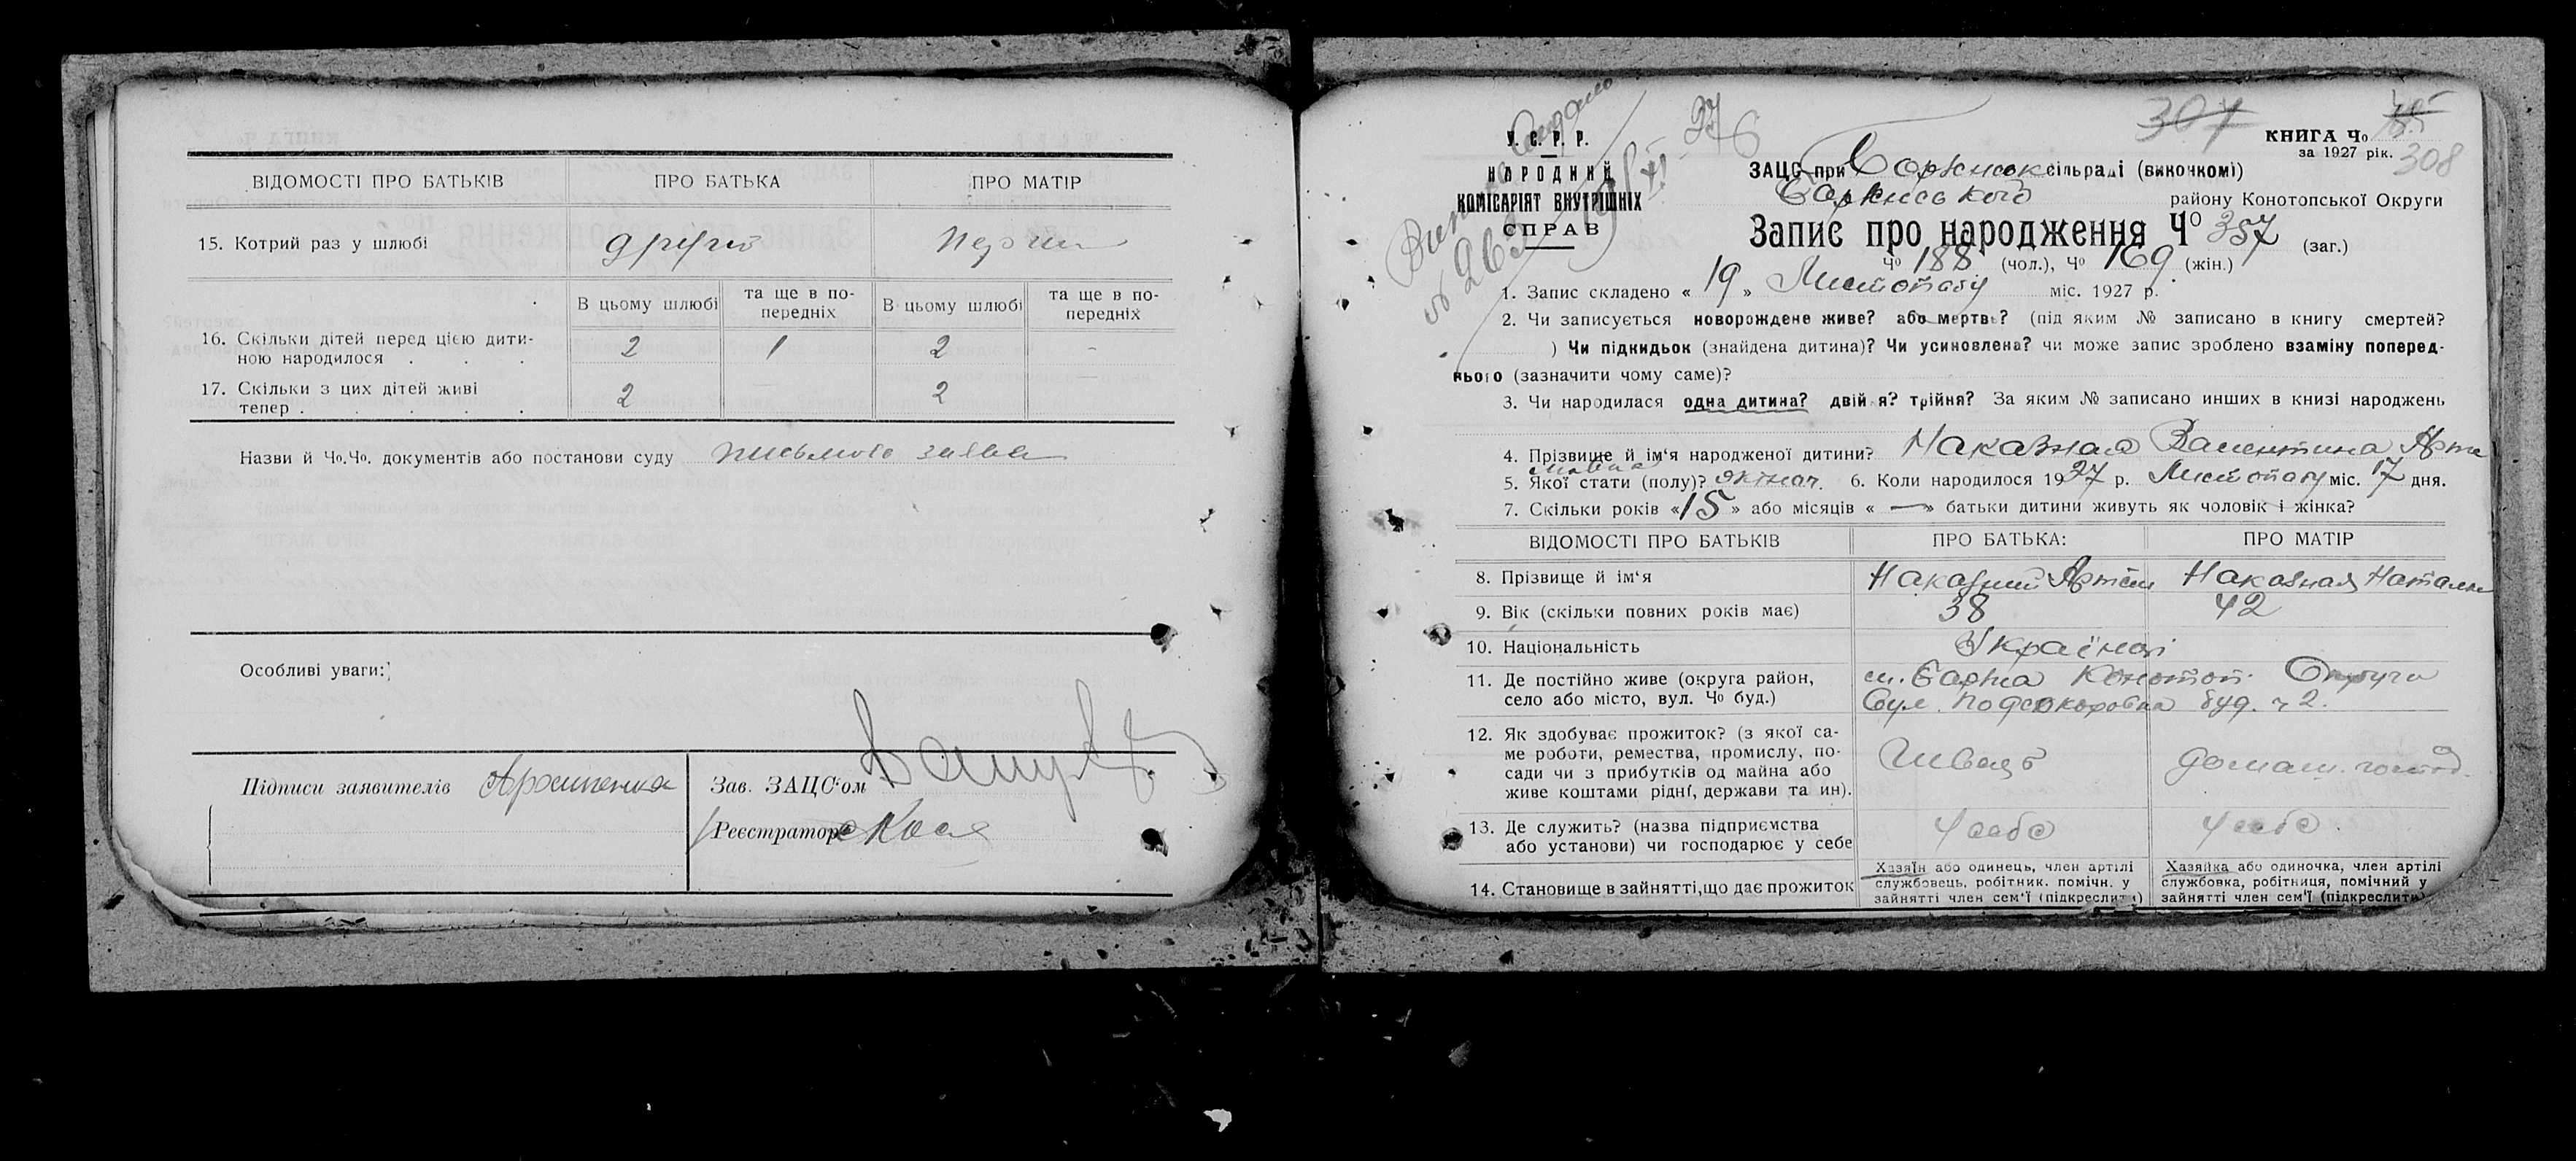 ВІДОМОСТІ ПРО БАТЬКІВ ПРО БАТЬКА ПРО МАТІР
15. Котрий раз у шлюбі другий
В цьому шлюбі та ще в по-передніх В цьому шлюбі та ще в по-передніх
16. Скільки дітей перед цією дити-
ною народилося . . . 2 1 2 -
17. Скільки з цих дітей живі
тепер . . . . . 2 — 2 —
Назви й Чо.Чо. документів або постанови суду заява
Особливі уваги:
Підписи заявителів
Зав. ЗАЦС'ом
Реєстратор
У. С. Р. Р.
НАРОДНИЙ
КОМІСАРІЯТ ВНУТРІШНІХ
СПРАВ
276
307
КНИГА Чо
за 1927 рік. 308
ЗАЦС при Борзенськ сільраді (виконкомі)
Борзенського району Конотопської Округи
Запис про народження Чо 357 (заг.)
Чо 188 (чол.), Чо 169 (жін.)
1. Запис складено « 19 » Листопаду міс. 1927 р.
2. Чи записується новорождене живе? або мертве? (під яким № записано в книгу смертей?
) Чи підкидьок (знайдена дитина)? Чи усиновлена? чи може запис зроблено взаміну поперед-
нього (зазначити чому саме)?
3. Чи народилася одна дитина? двійня? трійня? За яким № записано инших в книзі народжень
4. Прізвище й ім'я народженої дитини? Наказная Валентина Арте
5. Якої стати (полу)? жіноч. 6. Коли народилося 1927 р. Листопаду міс. 17 дня.
7. Скільки років «15» або місяців « — » батьки дитини живуть як чоловік і жінка?
ВІДОМОСТІ ПРО БАТЬКІВ ПРО БАТЬКА: ПРО МАТІР
8. Прізвище й ім'я Наказний Артем Наказная Наталія
9. Вік (скільки повних років має) 38 42
10. Національність Українці
11. Де постійно живе (округа район,
село або місто, вул. Чо буд.) м. Борзна Конотоп. Округи
вул. буд. ч 2.
12. Як здобуває прожиток? (з якої са-
ме роботи, ремества, промислу, по-
сади чи з прибутків од майна або
живе коштами рідні, держави та ин). Швець домаш. господ.
13. Де служить? (назва підприємства
або установи) чи господарює у себе У себе У себе
14. Становище в зайнятті, що дає прожиток
Хазяїн або одинець, член артілі
службовець, робітник. помічн. у
зайнятті член сем'ї (підкреслити)
Хазяйка або одиночка, член артілі
службовка, робітниця, помічний у
зайнятті член сем'ї (підкреслити)